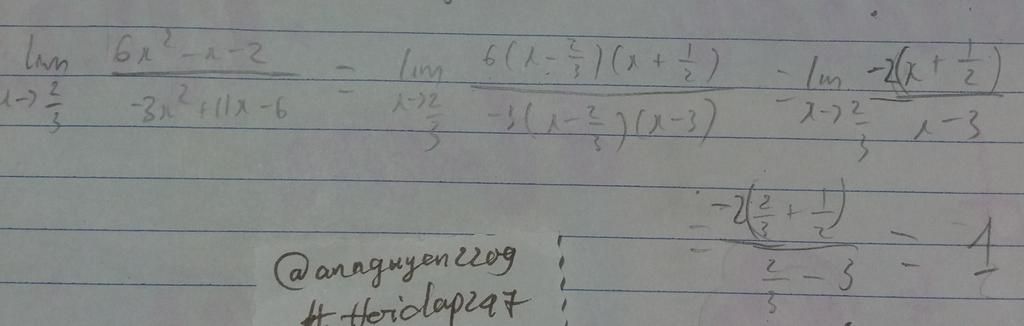 lim x→2/3 (6x² - x - 2)/(-3x² + 11x - 6) = lim x→2/3 6(x - 2/3)(x + 1/2)/-3(x - 2/3)(x - 3) = lim x→2/3 -2(x + 1/2)/x - 3
= -2(2/3 + 1/2)/2/3 - 3 = 1
@annguyen2209
# Hoidap247